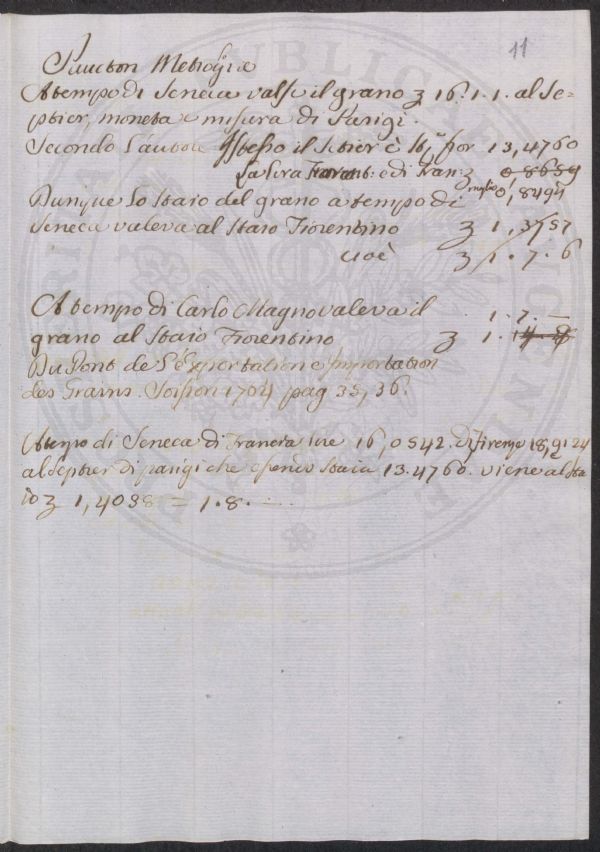 11
Paucton Metrologie
A tempo di Seneca valse il grano ʒ 16. 1. 1. al Se=
ptier, moneta e misura di Parigi.
Secondo l'autore Istesso il Setier è St. fior 13,4760
La lira di Fran: ʒ 0,8659
meglio 0,8491
Dunque lo staio del grano a tempo di
Seneca valeva al staio Fiorentino ʒ 1,3757
cioè ʒ 1. 7. 6
A tempo di Carlo Magno valeva il 1. 2. —
grano al staio Fiorentino ʒ 1. 14. 8
Du Pont de l'Exportation e Importation
des Grains. Soisson 1764 pag 35, 36.
A tempo di Seneca di Francia lire 16,0542. di Firenze 18,9124
al septier di parigi che essendo staia 13.4760. viene al sta
io ʒ 1,4038 = 1. 8. —